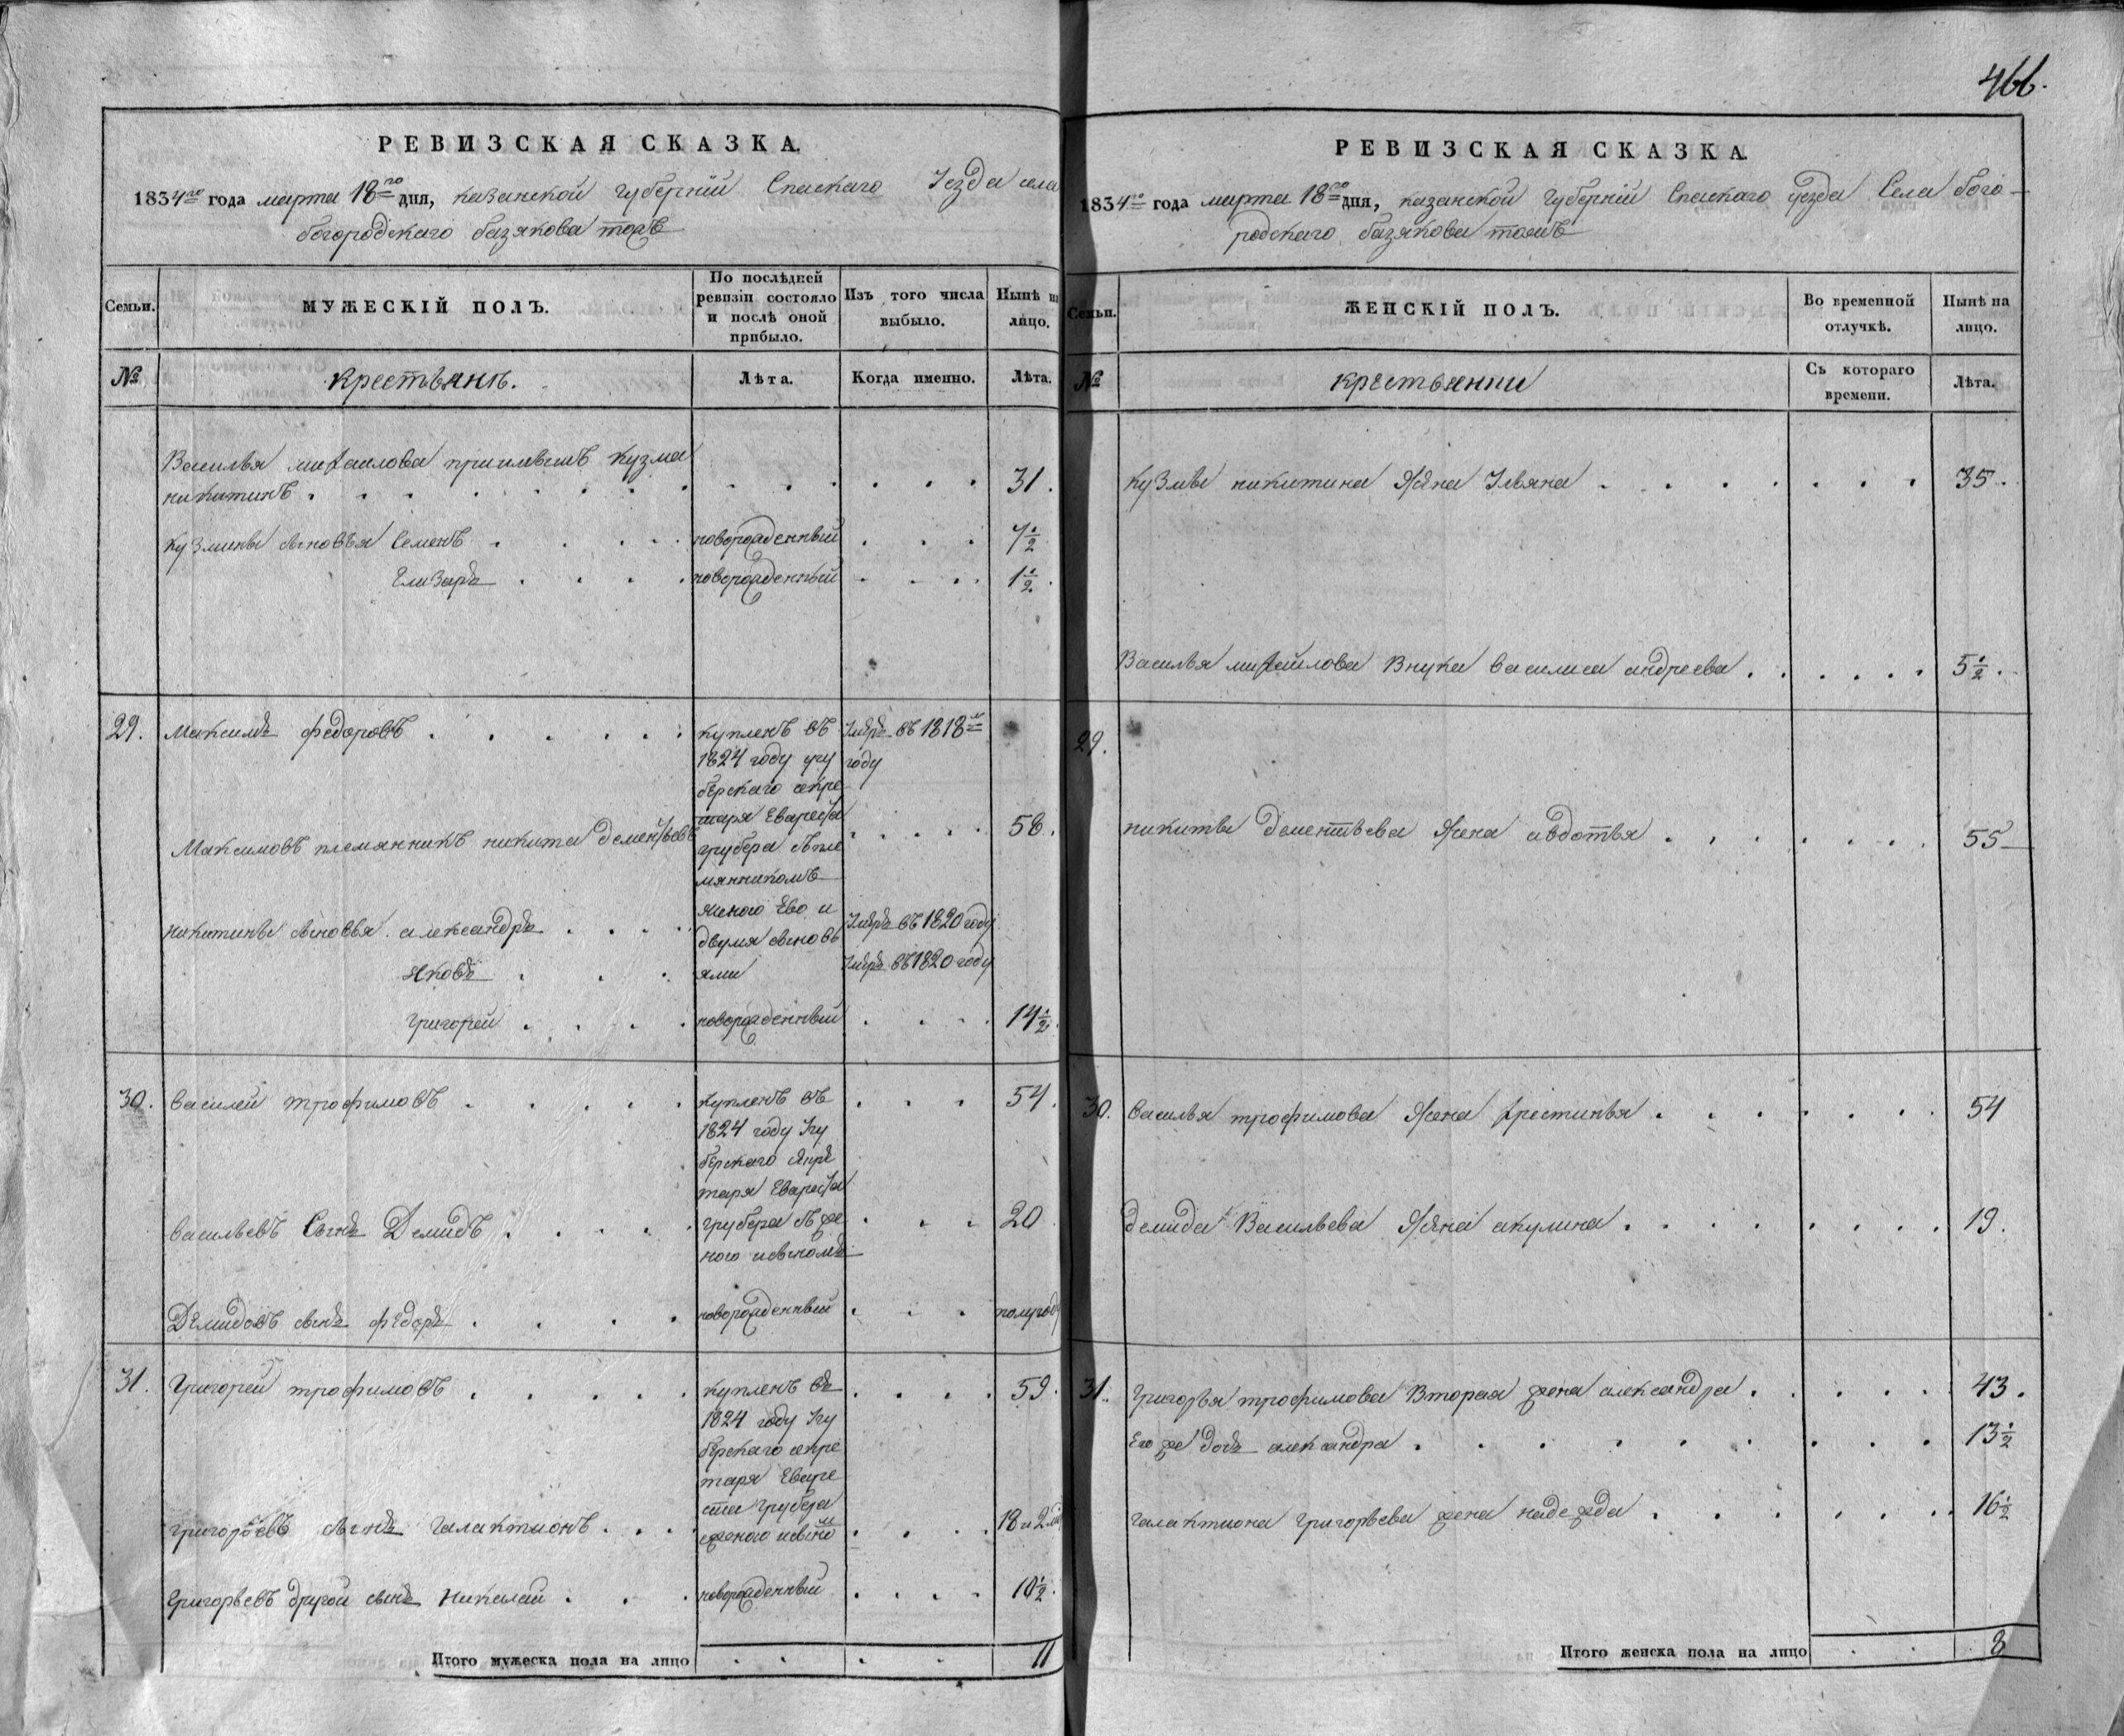 466.
РЕВИЗСКАЯ СКАЗКА.
1834го года марта 18го дня, казанской губерніи Спаскаго Уезда села
богородскаго базякова тожъ
Семьи.
МУЖЕСКІЙ ПОЛЪ.
По послѣдней
ревизіи состояло
и послѣ оной
прибыло.
Изъ того числа
выбыло.
Нынѣ на
лицо.
№
крестьянъ.
Лѣта.
Когда именно.
Лѣта.
Василья михаилова приимышъ Кузма
никитинъ 31.
Кузмины сыновья Семенъ новорожденный 7½
Елизаръ новорожденный 1½
29. Максимъ федоровъ куплень въ Умеръ въ 1818м
1824 году угу году
берскаго секре
таря Евареста
Максимовъ племянникъ никита дементьевъ 56.
грубера съ пле
мянникомъ
женою Ево и
никитины сыновья александръ Умеръ въ 1820 году
двумя сыновь
яковъ ями Умеръ въ 1820 году
григорей новорожденный 14½
30. Василей трофимовъ купленъ въ 54.
1824 году Угу
берскаго секре
таря Евареста
васильевъ Сынъ Демидъ грубера съ же 20
ного исыномъ
Демидовъ сынъ федоръ новорожденный полугоду
31. Григорей трофимовъ купленъ въ 59.
1824 году Угу
берскаго секре
таря Еваре
ста грубера
григорьевъ сынъ галактионъ женою исыно м 18 и 2 ме
Григорьевъ другой сынъ Николай новорожденный 10½
Итого мужеска пола на лицо 11
РЕВИЗСКАЯ СКАЗКА.
1834го года марта 18го дня, казанской губерніи Спаскаго уезда Села бого-
родскаго базякова тожъ
Семьи.
ЖЕНСКІЙ ПОЛЪ.
Во временной
отлучкѣ.
Нынѣ на
лицо.
№
крестьянки
Съ котораго
времени.
Лѣта.
Кузмы никитина Жена Ульяна 35.
Василья михайлова Внука василиса андреева 5½.
29.
никиты дементьева Жена авдотья 55
30. Василья трофимова Жена хрестинья 54
демида Васильева Жена акулина 19.
31. Григорья трофимова Вторая жена александра 43.
Его же дочь александра 13½
галактиона григорьева жена надежда 16½
Итого женска пола на лицо 8